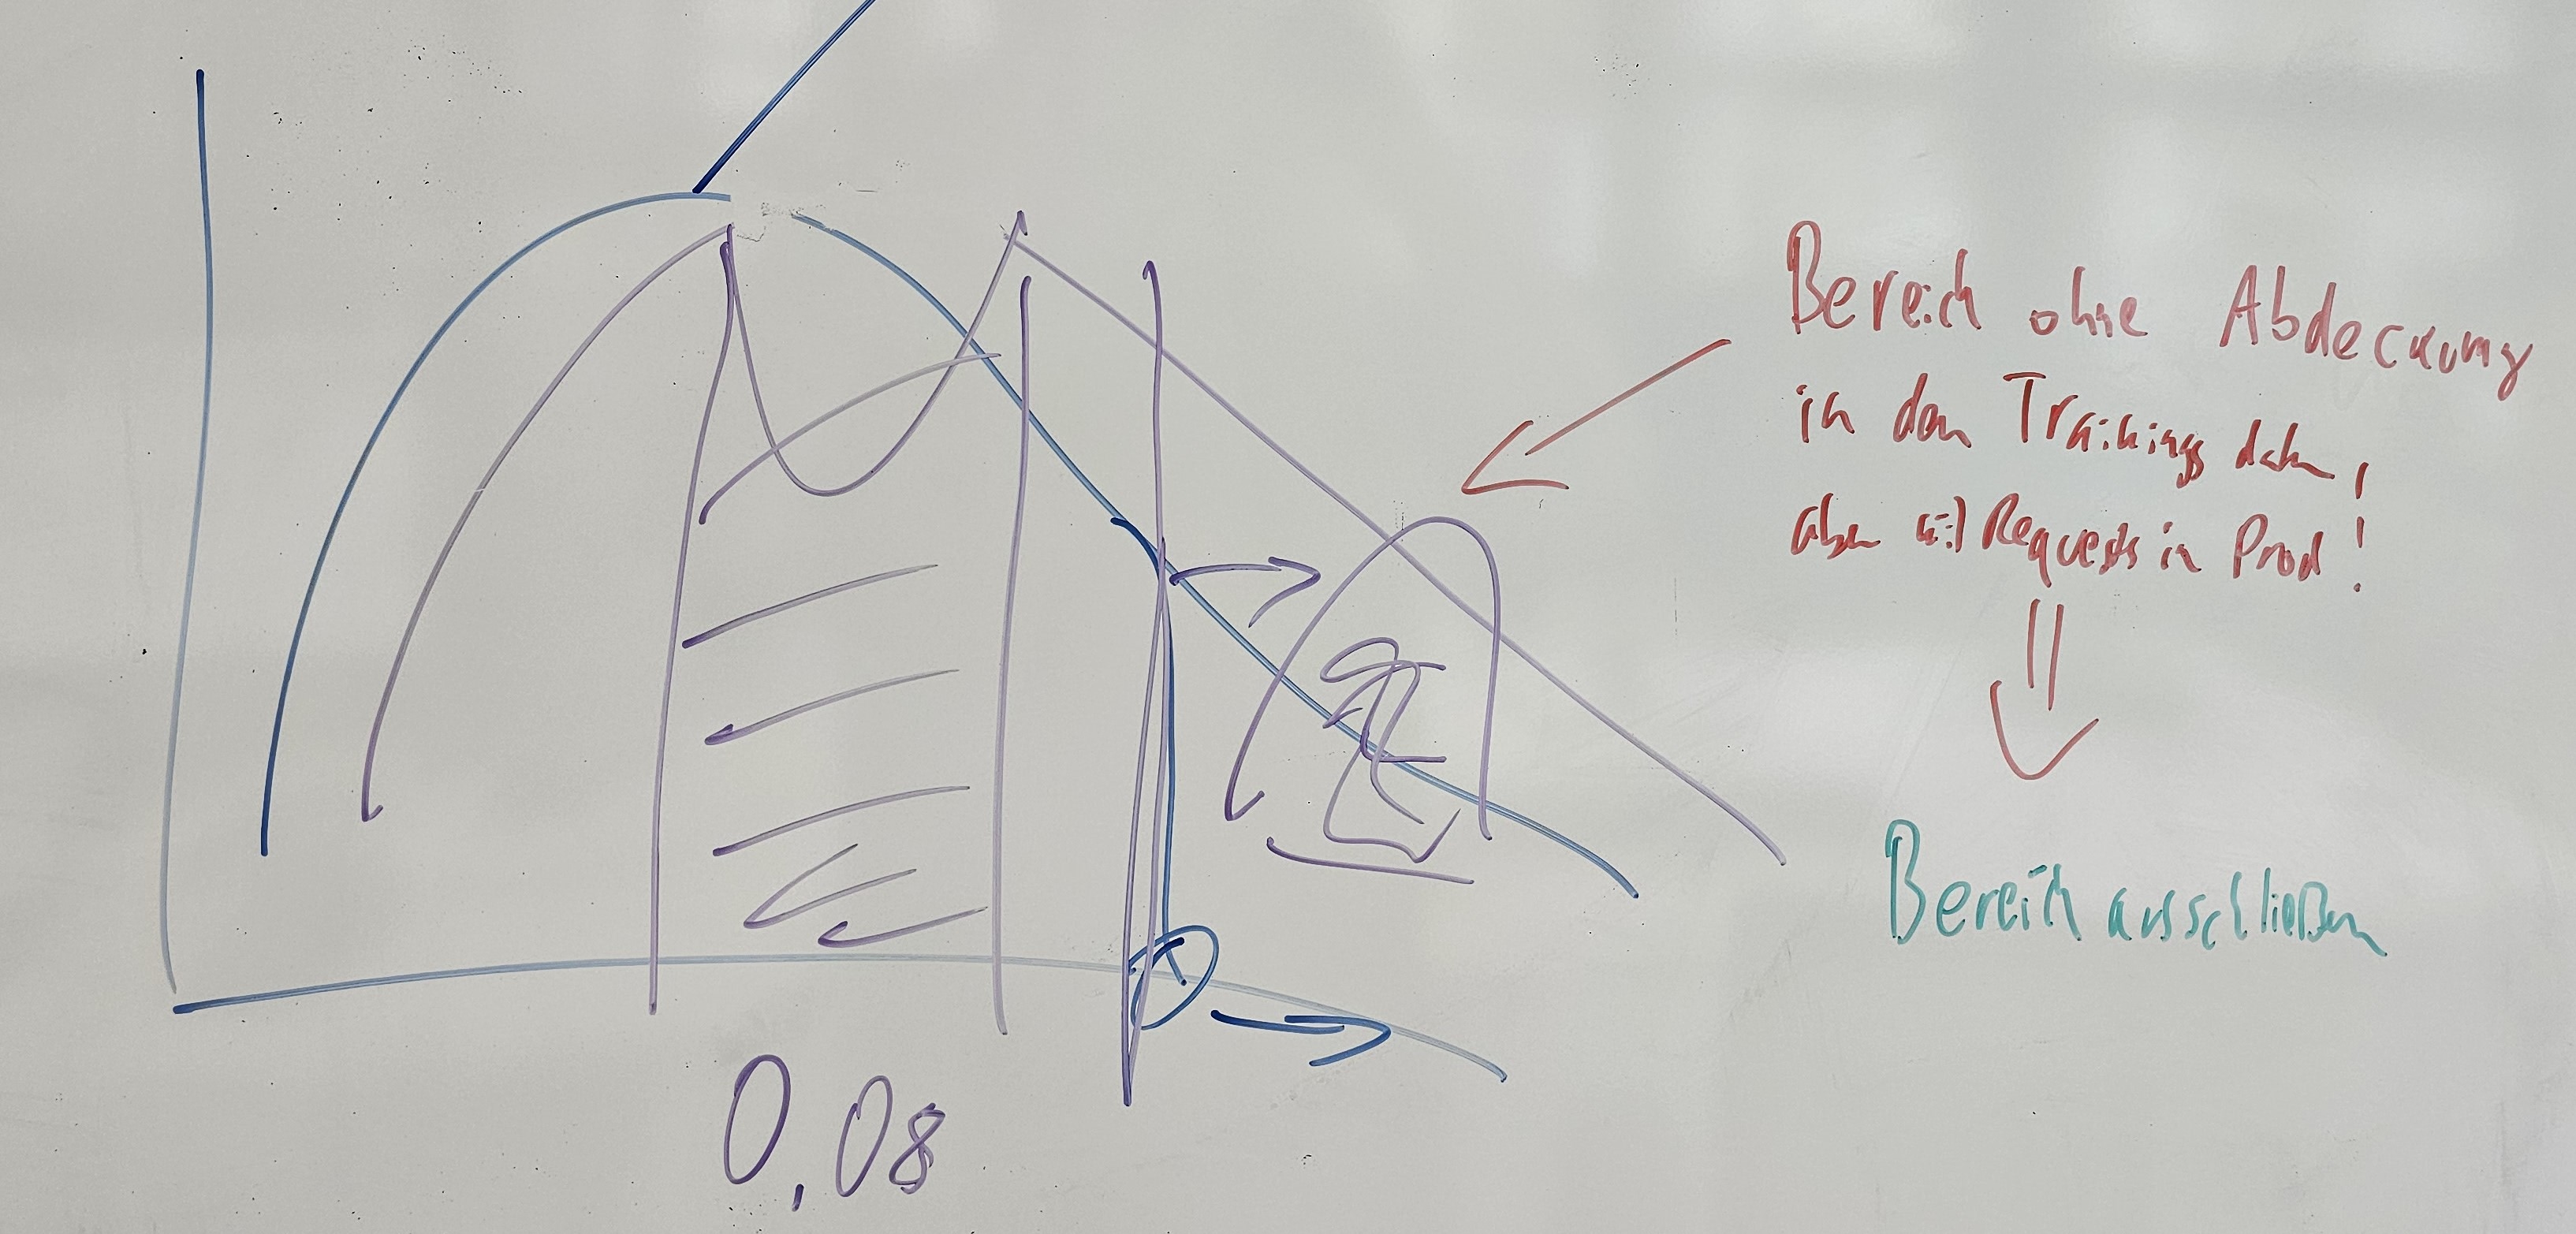 Bereich ohne Abdeckung
in den Trainingsdaten,
aber mit Requests in Prod!
Bereich ausschließen
0,08